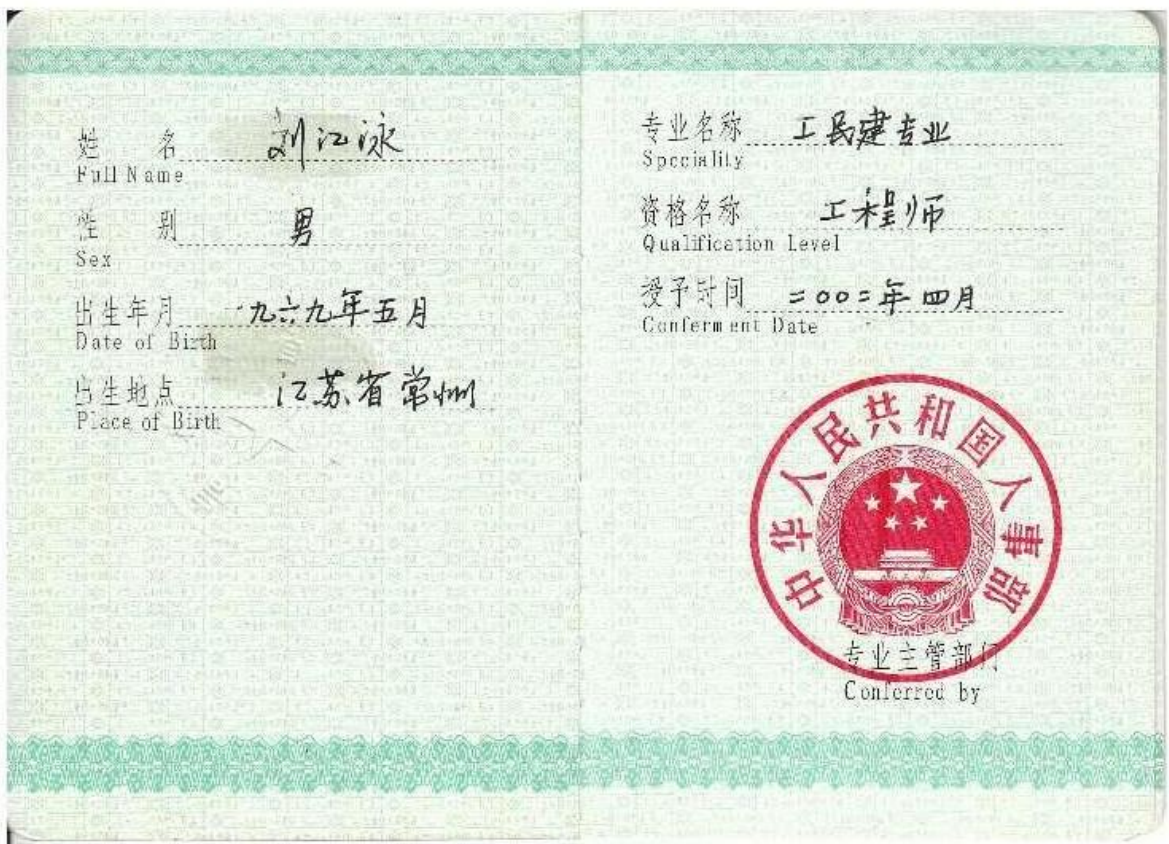 姓 名 刘江泳
Full Name
性 别 男
Sex
出生年月 一九六九年五月
Date of Birth
出生地点 江苏省常州
Place of Birth
专业名称 工民建专业
Speciality
资格名称 工程师
Qualification Level
授予时间 二00二年四月
Conferment Date
中华人民共和国人事部
专业主管部门
Conferred by